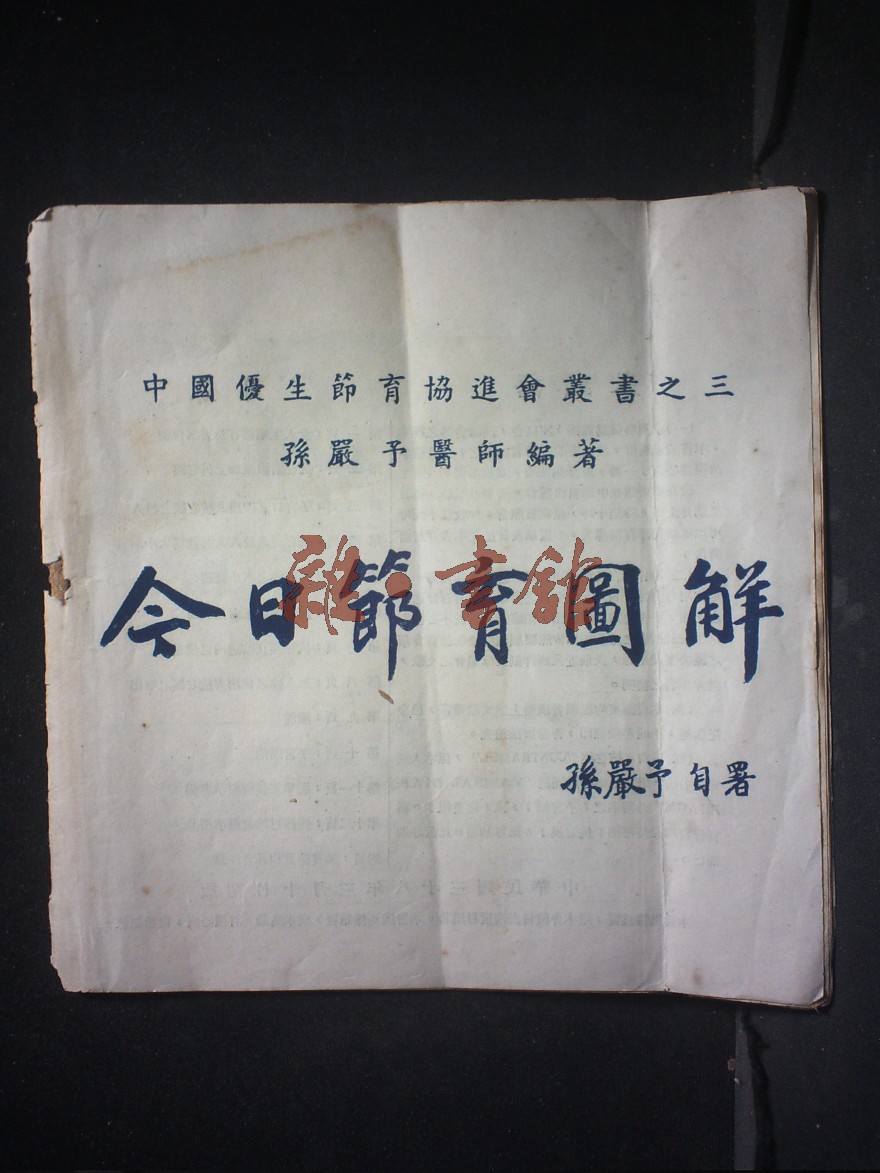 中國優生節育協進會叢書之三
孫嚴予醫師編著
今日節育圖解
雜·書館
孫嚴予自署